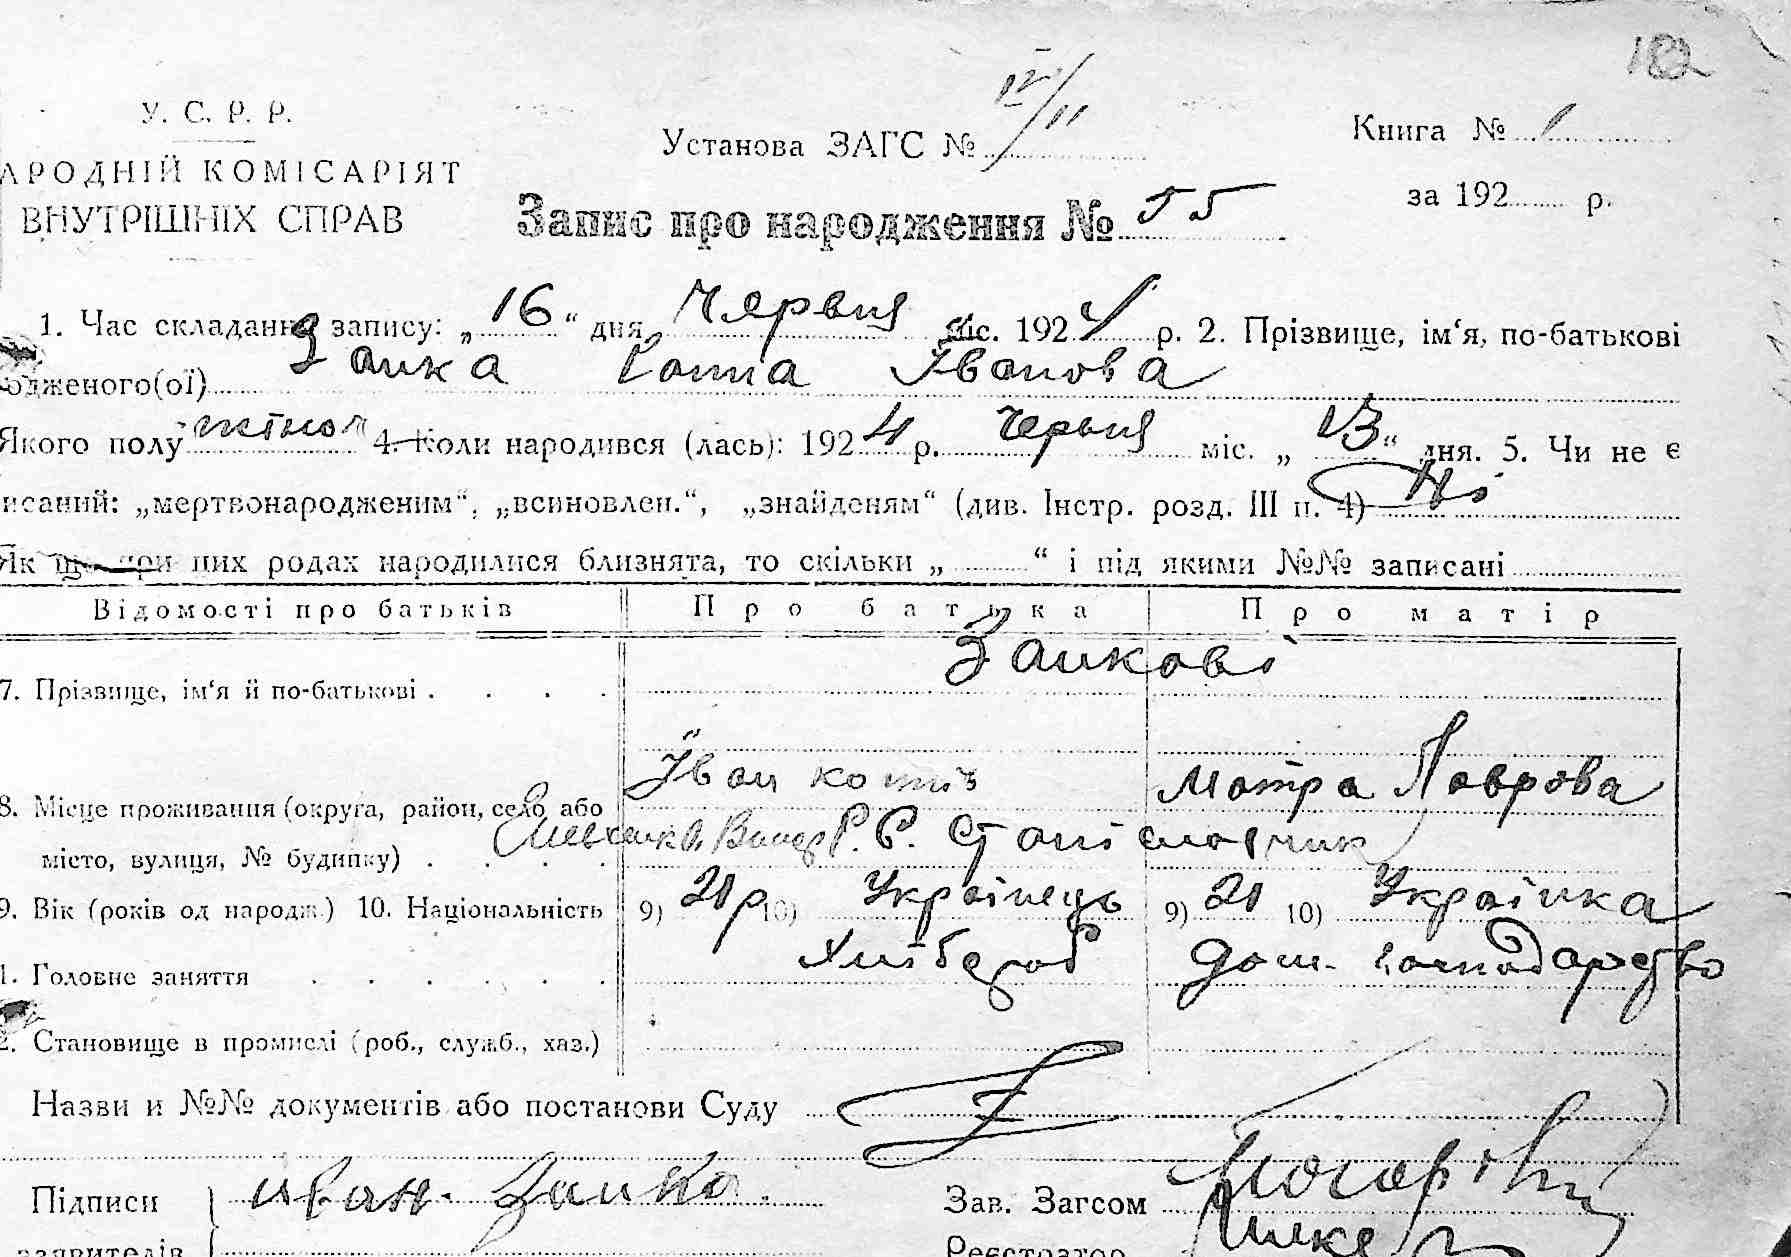 182
У. С. Р. Р.
АРОДНІЙ КОМІСАРІЯТ
ВНУТРІШНІХ СПРАВ
Установа ЗАГС № IV/11
Книга № 1
за 192 р.
Запис про народження № 55
1. Час складання запису: „ 16 “ дня Червня міс. 1924 р. 2. Прізвище, ім‘я, по-батькові
одженого(ої) Заика Ганна Іванова
Якого полу жіноч 4. Коли народився (лась): 1924 р. Червня міс. „ 13 “ дня. 5. Чи не є
исаний: „мертвонародженим“, „всиновлен.“, „знайденям“ (див. Інстр. розд. III п. 4) Ні
Як що при цих родах народилися близнята, то скільки „ “ і під якими №№ записані
Відомості про батьків Про батька Про матір
7. Прізвище, ім‘я й по-батькові . . . . Заикові
Іван Мотра Лаврова
8. Місце проживання (округа, район, село або
місто, вулиця, № будинку) . . . . Р. С. Станіславчик
9. Вік (років од народж.) 10. Національність 9) 21 р 10) Українець 9) 21 10) Українка
1. Головне заняття . . . . . . Хлібероб Дом. господарство
2. Становище в промислі (роб., служб., хаз.)
Назви и №№ документів або постанови Суду
Підписи Иван Заика Зав. Загсом
заявителів Реєстратор